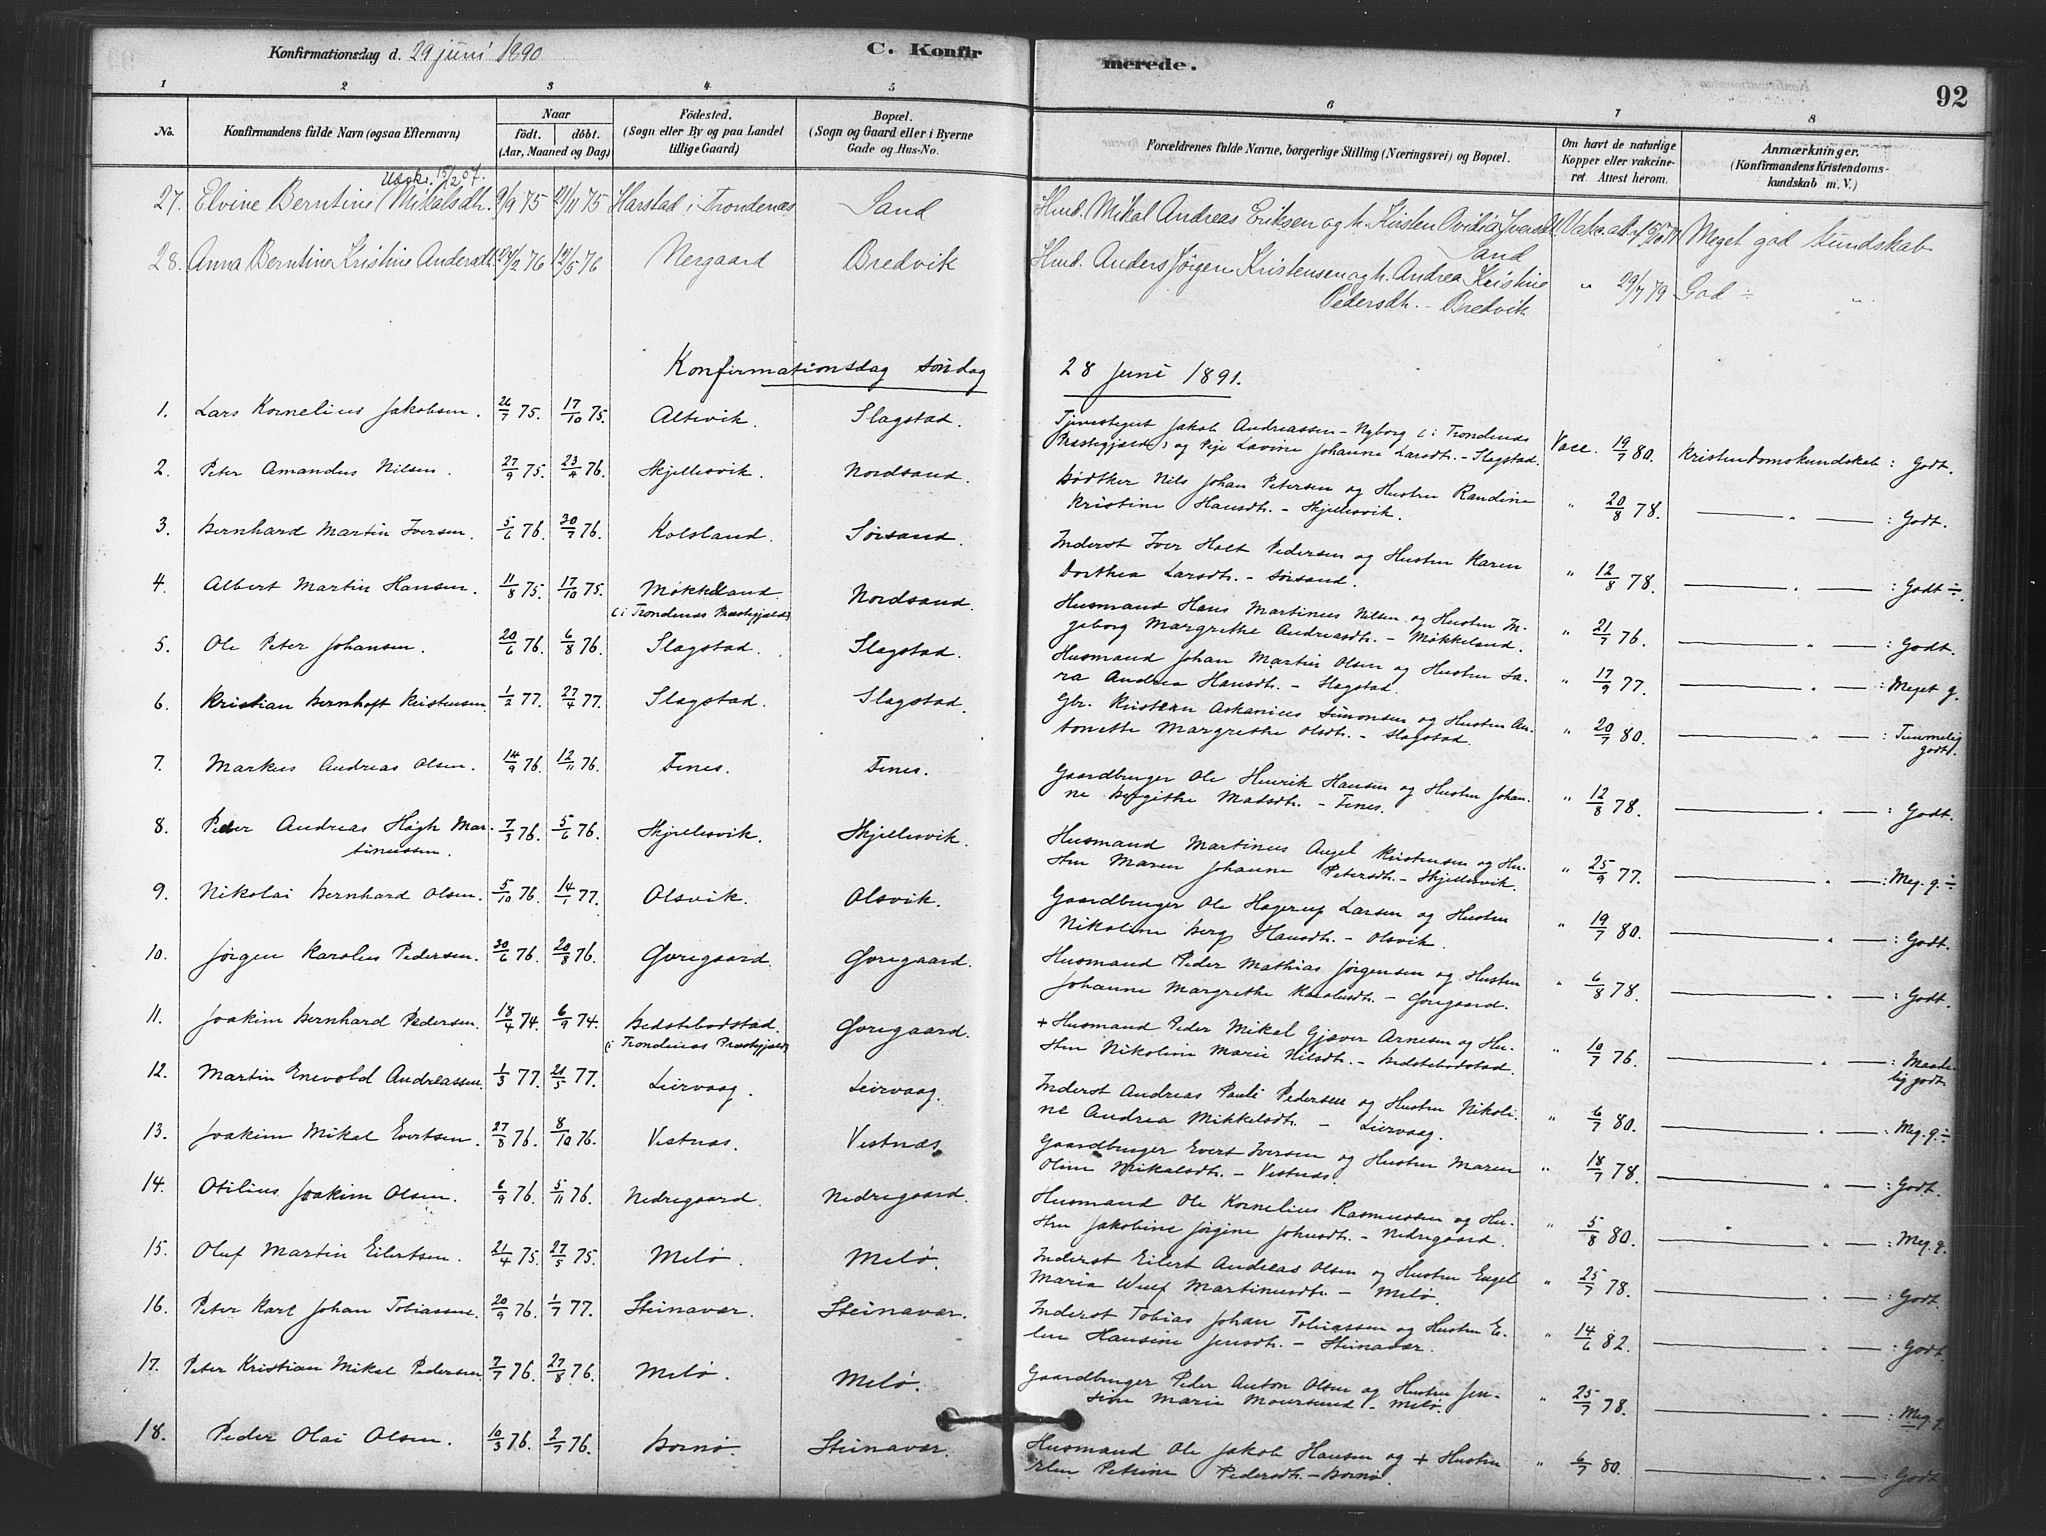 Konfirmationsdag d. 29 juni 1890
C. Konfirmerede.
92
1 2 3 4 5 6 7 8
No. Konfirmandens fulde Navn (ogsaa Efternavn) Naar født. døbt. (Aar, Maaned og Dag) Fødested. (Sogn eller By og paa Landet tillige Gaard) Bopæl. (Sogn og Gaard eller i Byerne Gade og Hus-No. Forældrenes fulde Navne, borgerlige Stilling (Næringsvei) og Bopæl. Om havt de naturlige Kopper eller vakcineret. Attest herom. Anmærkninger. (Konfirmandens Kristendomskundskab m. V.)
Udsk. 15/2 07.
27. Elvine Berntine Mikalsdh. 9/9 75 21/11 75 Harstad i Trondenæs Sand Husb. Mikal Andreas Eriksen og h. Kirsten Ovidia Iversd. Sand Vak. att. Meget god kundskab
28. Anna Berntine Kristine Andersdt. 76 76 Nergaard Bredvik Husb. Anders Jørgen Kristensen og h. Andrea Kristine
Pedersdh. - Bredvik " 29/7 79 God ÷ "
Konfirmationsdag Søndag 28 Juni 1891.
1. Lars Kornelius Jakobsen. 26/7 75. 17/10 75. Altevik. Slagstad. Tjenestegut Jakob Andreassen - Nyborg (i Trondenæs
Præstegjæld) og Pige Lavine Johanne Larsdtr. - Slagstad. Vacc. 19/7 80. Kristendomskundskab: Godt.
2. Peter Amandus Nilsen. 27/9 75. 23/4 76. Skjellesvik. Nordsand. Bødtker Nils Johan Petersen og Hustru Randine
Kristine Hansdtr. - Skjellesvik. " 20/8 78. — " — : Godt.
3. Bernhard Martin Iversen. 5/6 76. 30/7 76. Kolsland. Sørsand. Inderst Iver Holt Pedersen og Hustru Karen
Dorthea Larsdtr. - Sørsand. " 12/8 78. — " — : Godt ÷.
4. Albert Martin Hansen. 11/8 75. 17/10 75. Møkkeland.
(i Trondenæs Præstegjæld) Nordsand. Husmand Hans Martinus Nilsen og Hustru In-
geborg Margrethe Andreasdtr. - Møkkeland. " 21/7 76. — " — : Godt.
5. Ole Peter Johansen. 20/6 76. 6/8 76. Slagstad. Slagstad. Husmand Johan Martin Olsen og Hustru Sa-
ra Andrea Hansdtr. - Slagstad. " 17/9 77. — " — : Meget g.
6. Kristian Bernhoft Kristensen. 1/2 77. 27/4 77. Slagstad. Slagstad. Gbr. Kristen Askanius Simonsen og Hustru An-
tonette Margrethe Olsdtr. - Slagstad. " 20/7 80. — " — : Temmelig
godt.
7. Markus Andreas Olsen. 14/9 76. 12/11 76. Fines. Fines. Gaardbruger Ole Henrik Hansen og Hustru Johan-
ne Bergithe Madsdtr. - Fines. " 12/8 78. — " — : Godt.
8. Peder Andreas Høgh Mar-
tinussen. 7/3 76. 5/6 76. Skjellesvik. Skjellesvik. Husmand Martinus Angel Kristensen og Hu-
stru Maren Johanne Petersdtr. - Skjellesvik. " 25/9 77. — " — : Meg. g. ÷
9. Nikolai Bernhard Olsen. 5/10 76. 14/1 77. Olsvik. Olsvik. Gaardbruger Ole Hagerup Larsen og Hustru
Nikoline Berg Hansdtr. - Olsvik. " 19/7 80. — " — : Godt.
10. Jørgen Karolus Pedersen. 30/6 76. 20/8 76. Øvregaard. Øvregaard. Husmand Peder Mathias Jørgensen og Hustru
Johanne Margrethe Karolusdtr. - Øvregaard. " 6/8 78. — " — : Godt.
11. Joakim Bernhard Pedersen. 18/4 74. 6/9 74. Bedstebodstad.
(i Trondenæs Præstegjæld) Øvregaard. + Husmand Peder Mikal Gjæver Arnesen og Hu-
stru Nikoline Marie Nilsdtr. - Bedstebodstad. " 10/7 76. — " — : Maade-
lig godt.
12. Martin Enevold Andreassen. 1/3 77. 21/5 77. Leirvaag. Leirvaag. Inderst Andreas Pauli Pedersen og Hustru Nikoli-
ne Andrea Mikkelsdtr. - Leirvaag. " 6/7 80. — " — : Meg. g. ÷
13. Joakim Mikal Evertsen. 27/8 76. 8/10 76. Vestnæs. Vestnæs. Gaardbruger Evert Iversen og Hustru Maren
Oline Mikalsdtr. - Vestnæs. " 18/7 78. — " — : Godt.
14. Otilius Joakim Olsen. 6/9 76. 5/11 76. Nedregaard. Nedregaard. Husmand Ole Kornelius Rasmussen og Hu-
stru Jakobine Jørgine Johnsdtr. - Nedregaard. " 5/8 80. — " — : Meg. g.
15. Oluf Martin Eilertsen. 21/4 75. 27/5 75. Melø. Melø. Inderst Eilert Andreas Olsen og Hustru Engel
Maria Wulf Martinusdtr. - Melø. " 25/7 78. — " — : Godt.
16. Peter Karl Johan Tobiassen. 20/9 76. 1/7 77. Steinavær. Steinavær. Inderst Tobias Johan Tobiassen og Hustru El-
len Hansine Jensdtr. - Steinavær. " 14/6 82. — " — : Godt.
17. Peter Kristian Mikal Pedersen. 7/7 76. 27/8 76. Melø. Melø. Gaardbruger Peder Anton Olsen og Hustru Jen-
sine Marie Moursund - Melø. " 25/7 78. — " — : Meg. g.
18. Peder Olai Olsen. 10/3 76. 2/7 76. Bornø. Steinavær. Husmand Ole Jakob Hansen og + Hustru
Elen Petrine Pedersdtr. - Bornø. " 6/7 80. — " — : Godt.